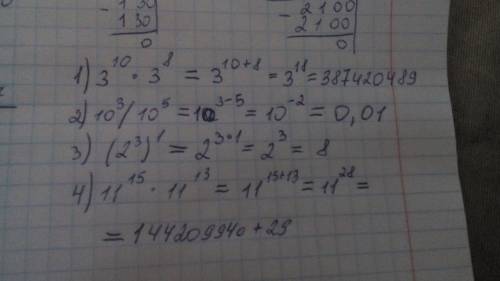 - 130
130
0
- 2100
2100
0
1) 3^10 · 3^8 = 3^10+8 = 3^18 = 387420489
2) 10^3/10^5 = 10^3-5 = 10^-2 = 0,01
3) (2^3)^1 = 2^3·1 = 2^3 = 8
4) 11^15 · 11^13 = 11^15+13 = 11^28 =
= 144209940+29